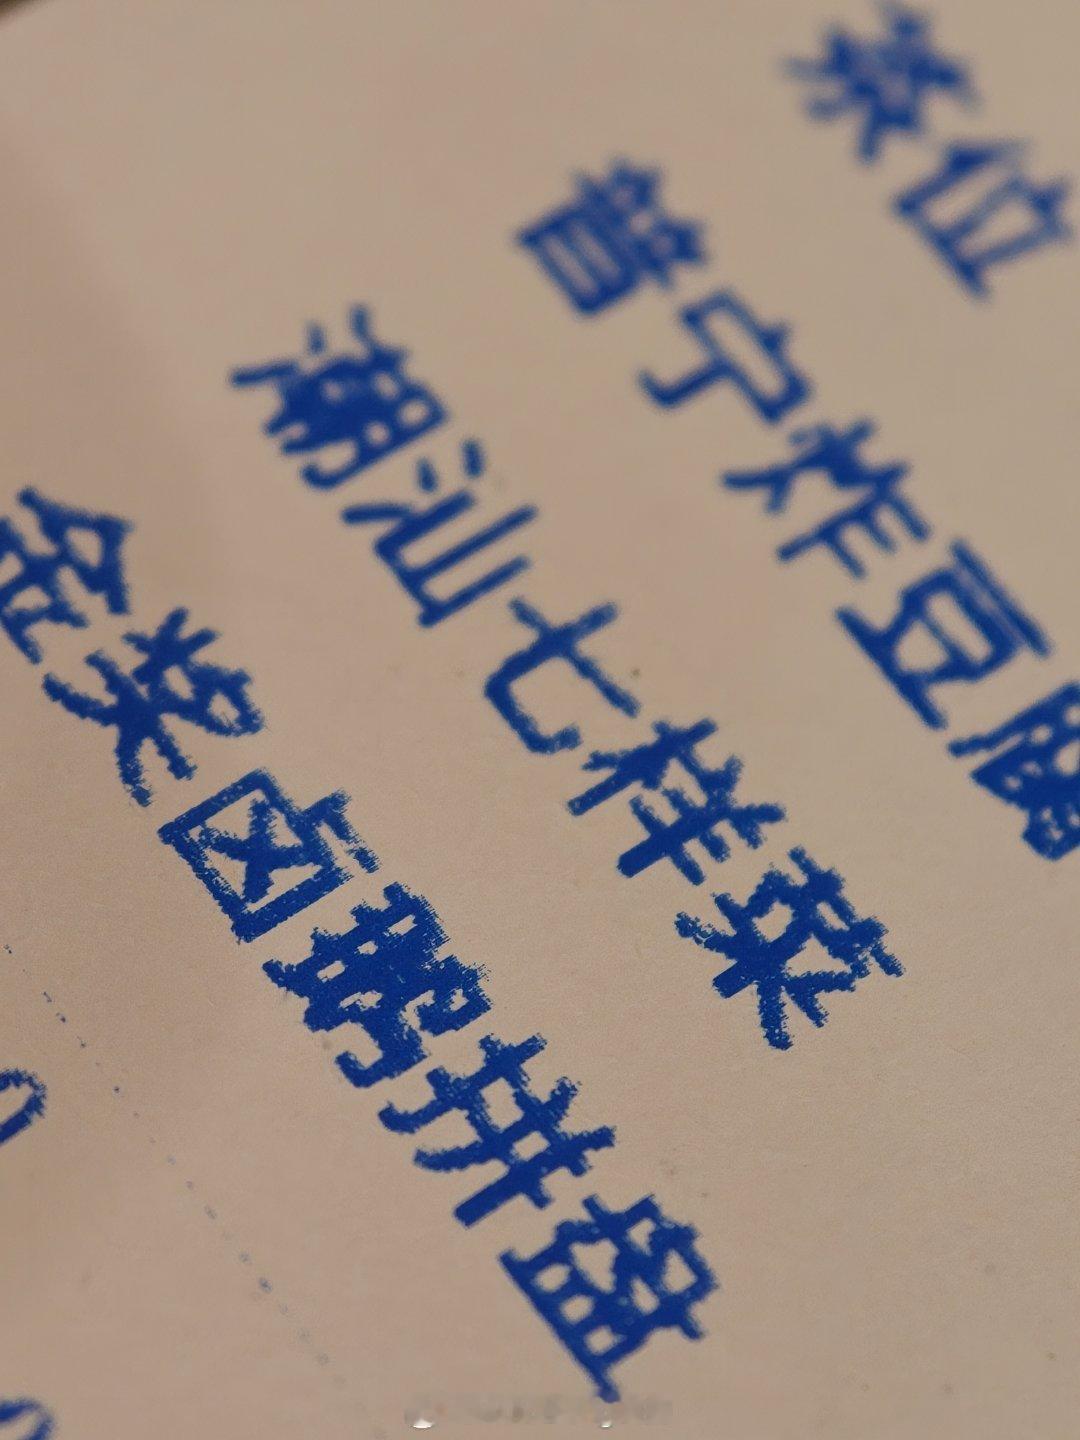 茶位
普宁炸豆腐
潮汕七样菜
金奖卤鹅拼盘